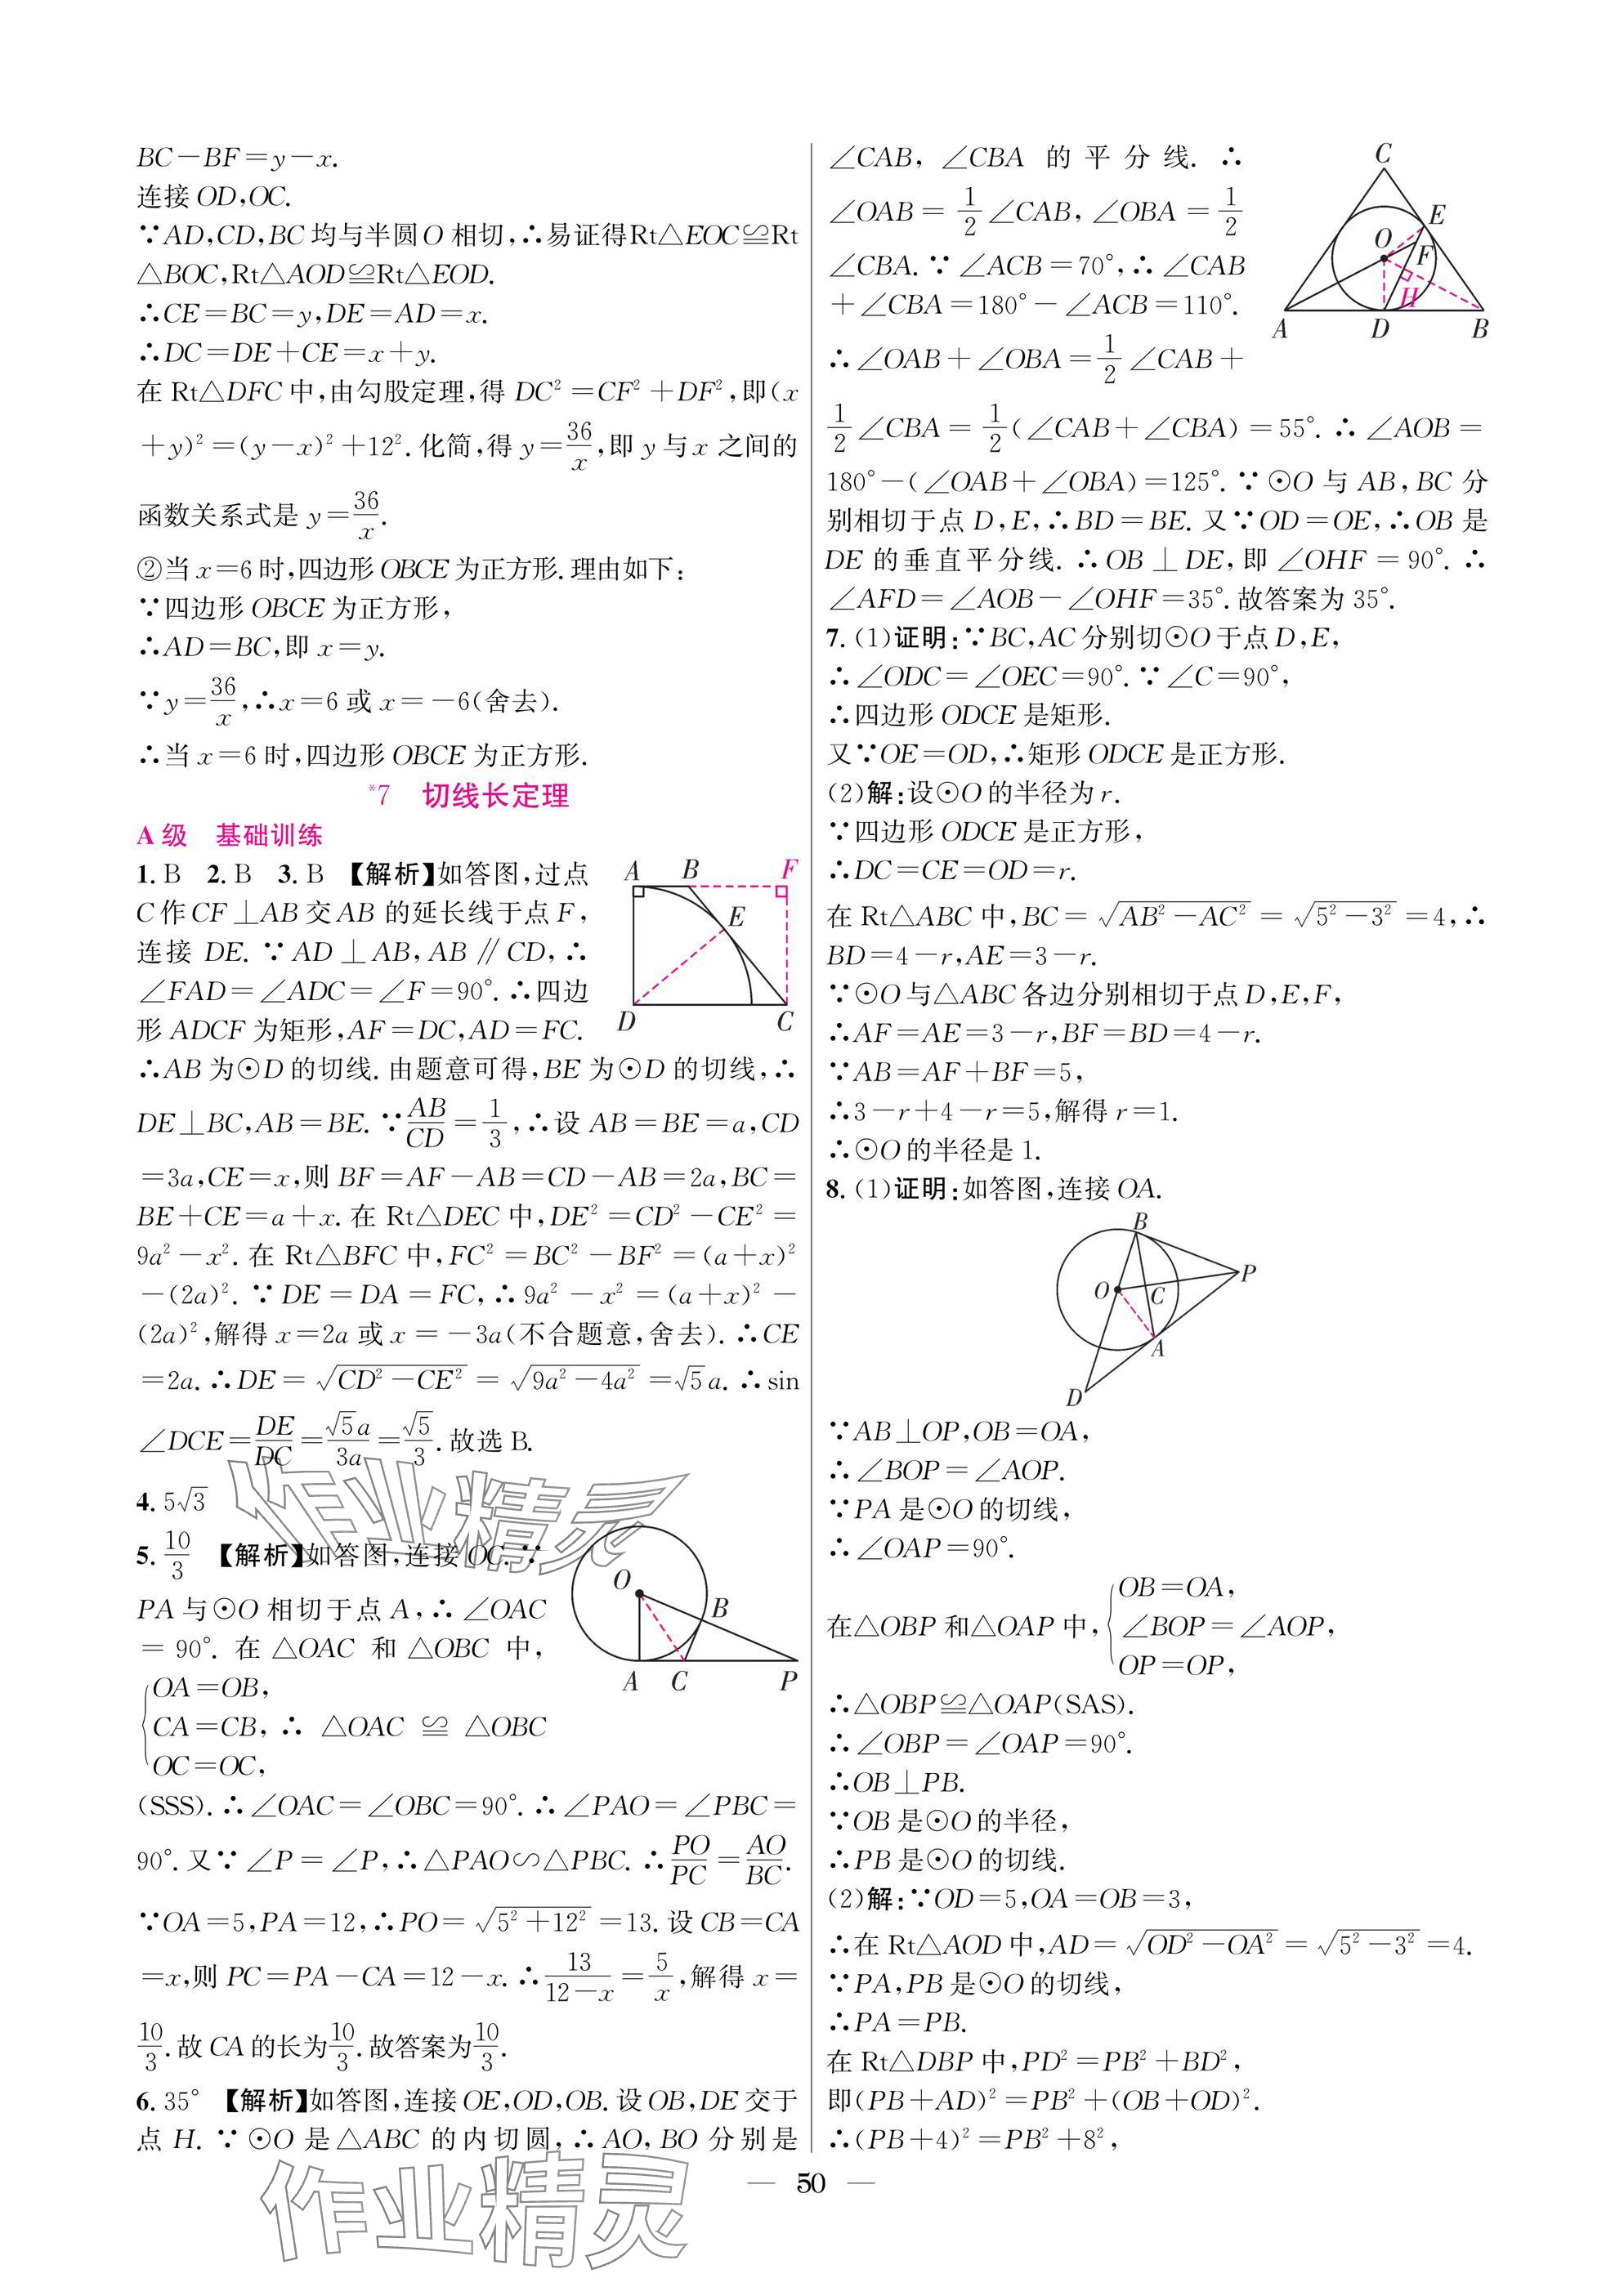 BC－BF＝y－x.
连接 OD,OC.
∵AD,CD,BC 均与半圆 O 相切,∴易证得Rt△EOC≌Rt
△BOC,Rt△AOD≌Rt△EOD.
∴CE＝BC＝y,DE＝AD＝x.
∴DC＝DE＋CE＝x＋y.
在 Rt△DFC 中,由勾股定理,得 DC²＝CF²＋DF²,即(x
＋y)²＝(y－x)²＋12².化简,得 y＝36/x,即 y 与 x 之间的
函数关系式是 y＝36/x.
②当 x＝6 时,四边形 OBCE 为正方形.理由如下：
∵四边形 OBCE 为正方形,
∴AD＝BC,即 x＝y.
∵y＝36/x,∴x＝6 或 x＝－6(舍去).
∴当 x＝6 时,四边形 OBCE 为正方形.
*7 切线长定理
A 级 基础训练
1. B 2. B 3. B 【解析】如答图,过点
C 作 CF⊥AB 交 AB 的延长线于点 F,
连接 DE. ∵AD⊥AB,AB∥CD,∴
∠FAD＝∠ADC＝∠F＝90°.∴四边
形 ADCF 为矩形,AF＝DC,AD＝FC.
A B F
E
D C
∴AB 为⊙D 的切线.由题意可得,BE 为⊙D 的切线,∴
DE⊥BC,AB＝BE.∵AB/CD＝1/3,∴设 AB＝BE＝a,CD
＝3a,CE＝x,则 BF＝AF－AB＝CD－AB＝2a,BC＝
BE＋CE＝a＋x.在 Rt△DEC 中,DE²＝CD²－CE²＝
9a²－x².在 Rt△BFC 中,FC²＝BC²－BF²＝(a＋x)²
－(2a)².∵DE＝DA＝FC,∴9a²－x²＝(a＋x)²－
(2a)²,解得 x＝2a 或 x＝－3a(不合题意,舍去).∴CE
＝2a.∴DE＝√(CD²－CE²)＝√(9a²－4a²)＝√5a.∴sin
∠DCE＝DE/DC＝√5a/3a＝√5/3.故选 B.
4. 5√3
5. 10/3 【解析】如答图,连接 OC.∵
PA 与⊙O 相切于点 A,∴∠OAC
＝90°. 在 △OAC 和 △OBC 中,
O
B
A C P
OA＝OB,
CA＝CB, ∴ △OAC ≌ △OBC
OC＝OC,
(SSS).∴∠OAC＝∠OBC＝90°.∴∠PAO＝∠PBC＝
90°.又∵∠P＝∠P,∴△PAO∽△PBC.∴PO/PC＝AO/BC.
∵OA＝5,PA＝12,∴PO＝√(5²＋12²)＝13.设 CB＝CA
＝x,则 PC＝PA－CA＝12－x.∴13/(12－x)＝5/x,解得 x＝
10/3.故 CA 的长为10/3.故答案为10/3.
6. 35° 【解析】如答图,连接 OE,OD,OB.设 OB,DE 交于
点 H.∵⊙O 是△ABC 的内切圆,∴AO,BO 分别是
∠CAB,∠CBA 的平分线.∴
∠OAB＝1/2∠CAB,∠OBA＝1/2
∠CBA.∵∠ACB＝70°,∴∠CAB
＋∠CBA＝180°－∠ACB＝110°.
∴∠OAB＋∠OBA＝1/2∠CAB＋
C
E
O
F
H
A D B
1/2∠CBA＝1/2(∠CAB＋∠CBA)＝55°.∴∠AOB＝
180°－(∠OAB＋∠OBA)＝125°.∵⊙O 与 AB,BC 分
别相切于点 D,E,∴BD＝BE.又∵OD＝OE,∴OB 是
DE 的垂直平分线.∴OB⊥DE,即∠OHF＝90°.∴
∠AFD＝∠AOB－∠OHF＝35°.故答案为 35°.
7. (1)证明：∵BC,AC 分别切⊙O 于点 D,E,
∴∠ODC＝∠OEC＝90°.∵∠C＝90°,
∴四边形 ODCE 是矩形.
又∵OE＝OD,∴矩形 ODCE 是正方形.
(2)解：设⊙O 的半径为 r.
∵四边形 ODCE 是正方形,
∴DC＝CE＝OD＝r.
在 Rt△ABC 中,BC＝√(AB²－AC²)＝√(5²－3²)＝4,∴
BD＝4－r,AE＝3－r.
∵⊙O 与△ABC 各边分别相切于点 D,E,F,
∴AF＝AE＝3－r,BF＝BD＝4－r.
∵AB＝AF＋BF＝5,
∴3－r＋4－r＝5,解得 r＝1.
∴⊙O 的半径是 1.
8. (1)证明：如答图,连接 OA.
B
P
O C
A
D
∵AB⊥OP,OB＝OA,
∴∠BOP＝∠AOP.
∵PA 是⊙O 的切线,
∴∠OAP＝90°.
OB＝OA,
在△OBP 和△OAP 中, ∠BOP＝∠AOP,
OP＝OP,
∴△OBP≌△OAP(SAS).
∴∠OBP＝∠OAP＝90°.
∴OB⊥PB.
∵OB 是⊙O 的半径,
∴PB 是⊙O 的切线.
(2)解：∵OD＝5,OA＝OB＝3,
∴在 Rt△AOD 中,AD＝√(OD²－OA²)＝√(5²－3²)＝4.
∵PA,PB 是⊙O 的切线,
∴PA＝PB.
在 Rt△DBP 中,PD²＝PB²＋BD²,
即(PB＋AD)²＝PB²＋(OB＋OD)².
∴(PB＋4)²＝PB²＋8²,
— 50 —
作业精灵
作业精灵